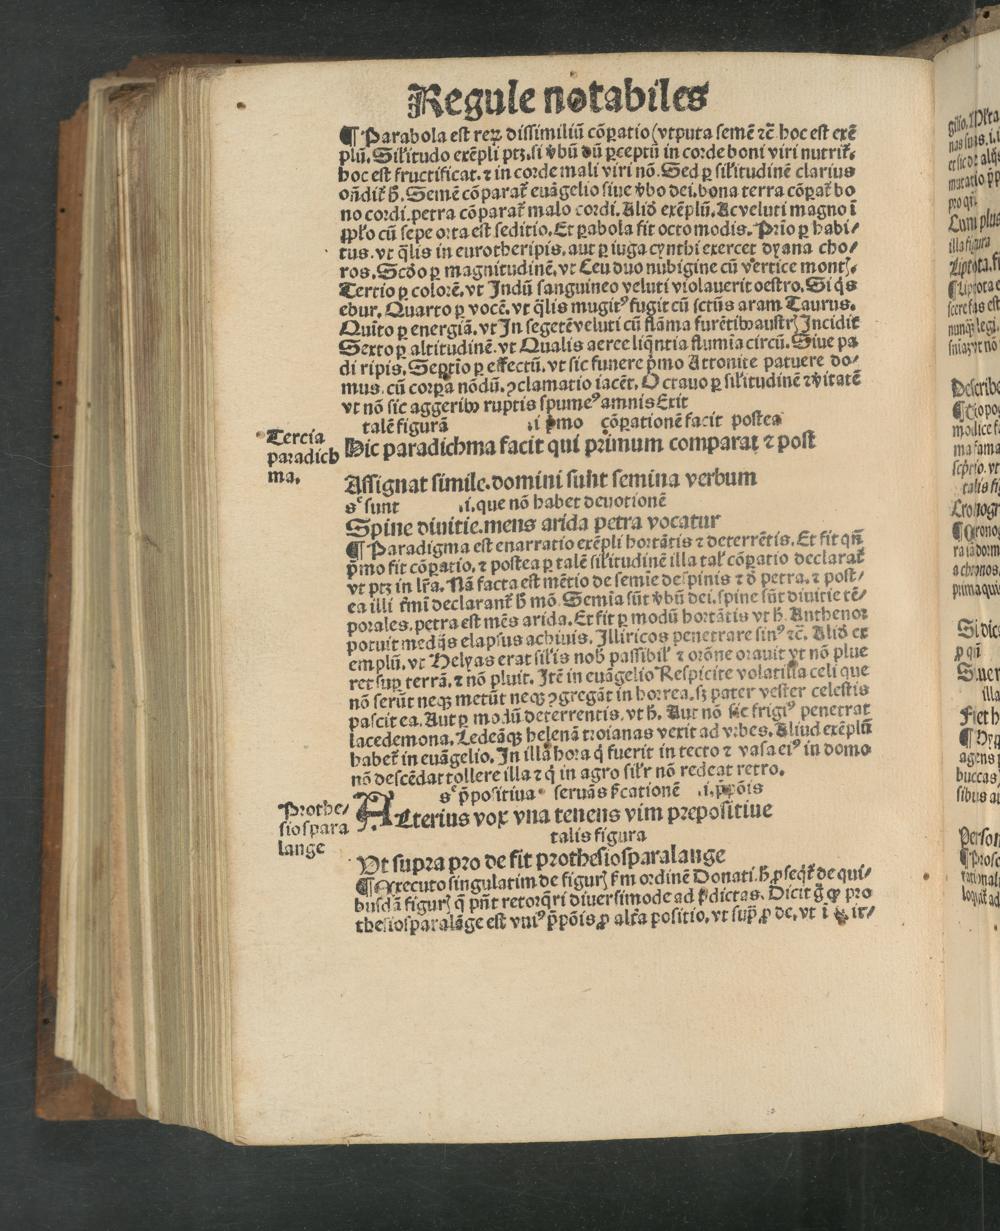 Regule notabiles
¶ Parabola est reꝝ dissimiliū cōꝑatio (vtputa semē ⁊c̄ hoc est exē
plū. Siłitudo exēpli ptꝫ. si v̄bū dū ꝑceptū in corde boni viri nutrit᷑.
hoc est fructificat. ⁊ in corde mali viri nō. Sed ꝑ siłitudinē clarius
on̄dit᷑ h̄. Semē cōparat᷑ euāgelio siue v̄bo dei. bona terra cōꝑat᷑ bo
no cordi. petra cōparat᷑ malo cordi. Alid̓ exēplū. Ac veluti magno ī
pp̄ło cū sepe orta est seditio. Et ꝑabola fit octo modis. Prio ꝑ habi/
tus. vt q̄lis in eurotheripis. aut ꝑ iuga cynthi exercet dyana cho/
ros. Scd̓o ꝑ magnitudinē. vt Ceu duo nubigine cū vertice montꝭ.
Tertio ꝑ colorē. vt Indū sanguineo veluti violauerit oestro. Si q̄s
ebur. Quarto ꝑ vocē. vt q̄lis mugitꝰ fugit cū sctūs aram Taurus.
Quīto ꝑ energiā. vt In segetē veluti cū flāma furētibꝰ austrꝭ Incidit
Sexto ꝑ altitudinē. vt Qualis aerce liq̄ntia flumīa circū. Siue pa
di ripis. Septio ꝑ effectū. vt sic funere p̄mo Attonite patuere do/
mus. cū corꝑa nōdū. ꝯclamatio iacēt. Octauo ꝑ siłitudinē ⁊ v̄itatē
vt nō sic aggeribꝰ ruptis spumeꝰ amnis Exit
talē figurā .i p̄mo cōꝑationē facit postea
Tercia
paradich
ma.
Hic paradichma facit qui primum comparat ⁊ post
Assignat simile. domini sunt semina verbum
sꝫ sunt .i. que nō habet deuotionē
Spine diuitie. mens arida petra vocatur
¶ Paradigma est enarratio exēpli hortātis ⁊ deterrētis. Et fit qn̄
p̄mo fit cōꝑatio. ⁊ postea ꝑ talē siłitudinē illa tał cōꝑatio declarat᷑
vt ptꝫ in lr̄a. Nā facta est mētio de semīe de spinis ⁊ d̓ petra. ⁊ post/
ea illi t̄mi declarant᷑ h̄ mō. Semīa sūt v̄bū dei. spine sūt diuitie tē/
porales. petra est mēs arida. Et fit ꝑ modū hortātis vt h̄. Anthenor
potuit medijs elapsus achiuis. Illiricos penetrare sinꝰ ⁊c̄. Alid̓ ex
emplū. vt Helyas erat siłis nob̄ passibił ⁊ orōne orauit vt nō plue
ret suꝑ terrā. ⁊ nō pluit. Itē in euāgelio Respicite volatilia celi que
nō serūt neqꝫ metūt neqꝫ ꝯgregāt in horrea. sꝫ pater vester celestis
pascit ea. Aut ꝑ modū deterrentis. vt h̄. Aut nō sic frigiꝰ penetrat
lacedemona. Ledeāqꝫ helenā troianas vexit ad vrbes. Aliud exēplū
habet᷑ in euāgelio. In illa hora q̄ fuerit in tecto ⁊ vasa eiꝰ in domo
nō descēdat tollere illa ⁊ q̄ in agro siłr nō redeat retro.
sꝫ p̄positiua seruās .i. p̄pōis
Prothe/
siospara
lange
Alterius vox vna tenens vim prepositiue
talis figura
Vt supra pro de fit prothesiosparalange
¶ Executo singulatim de figurꝭ fm ordinē Donati. h̄ ꝓseqt᷑ de qui/
busdā figurꝭ q̄ pn̄t retorq̄ri diuersimode ad p̄dictas. Dicit g̊ ꝙ pro
thesiosparalāge est vniꝰ p̄pōis ꝓ alr̄a positio. vt sup̄ ꝓ de. vt i